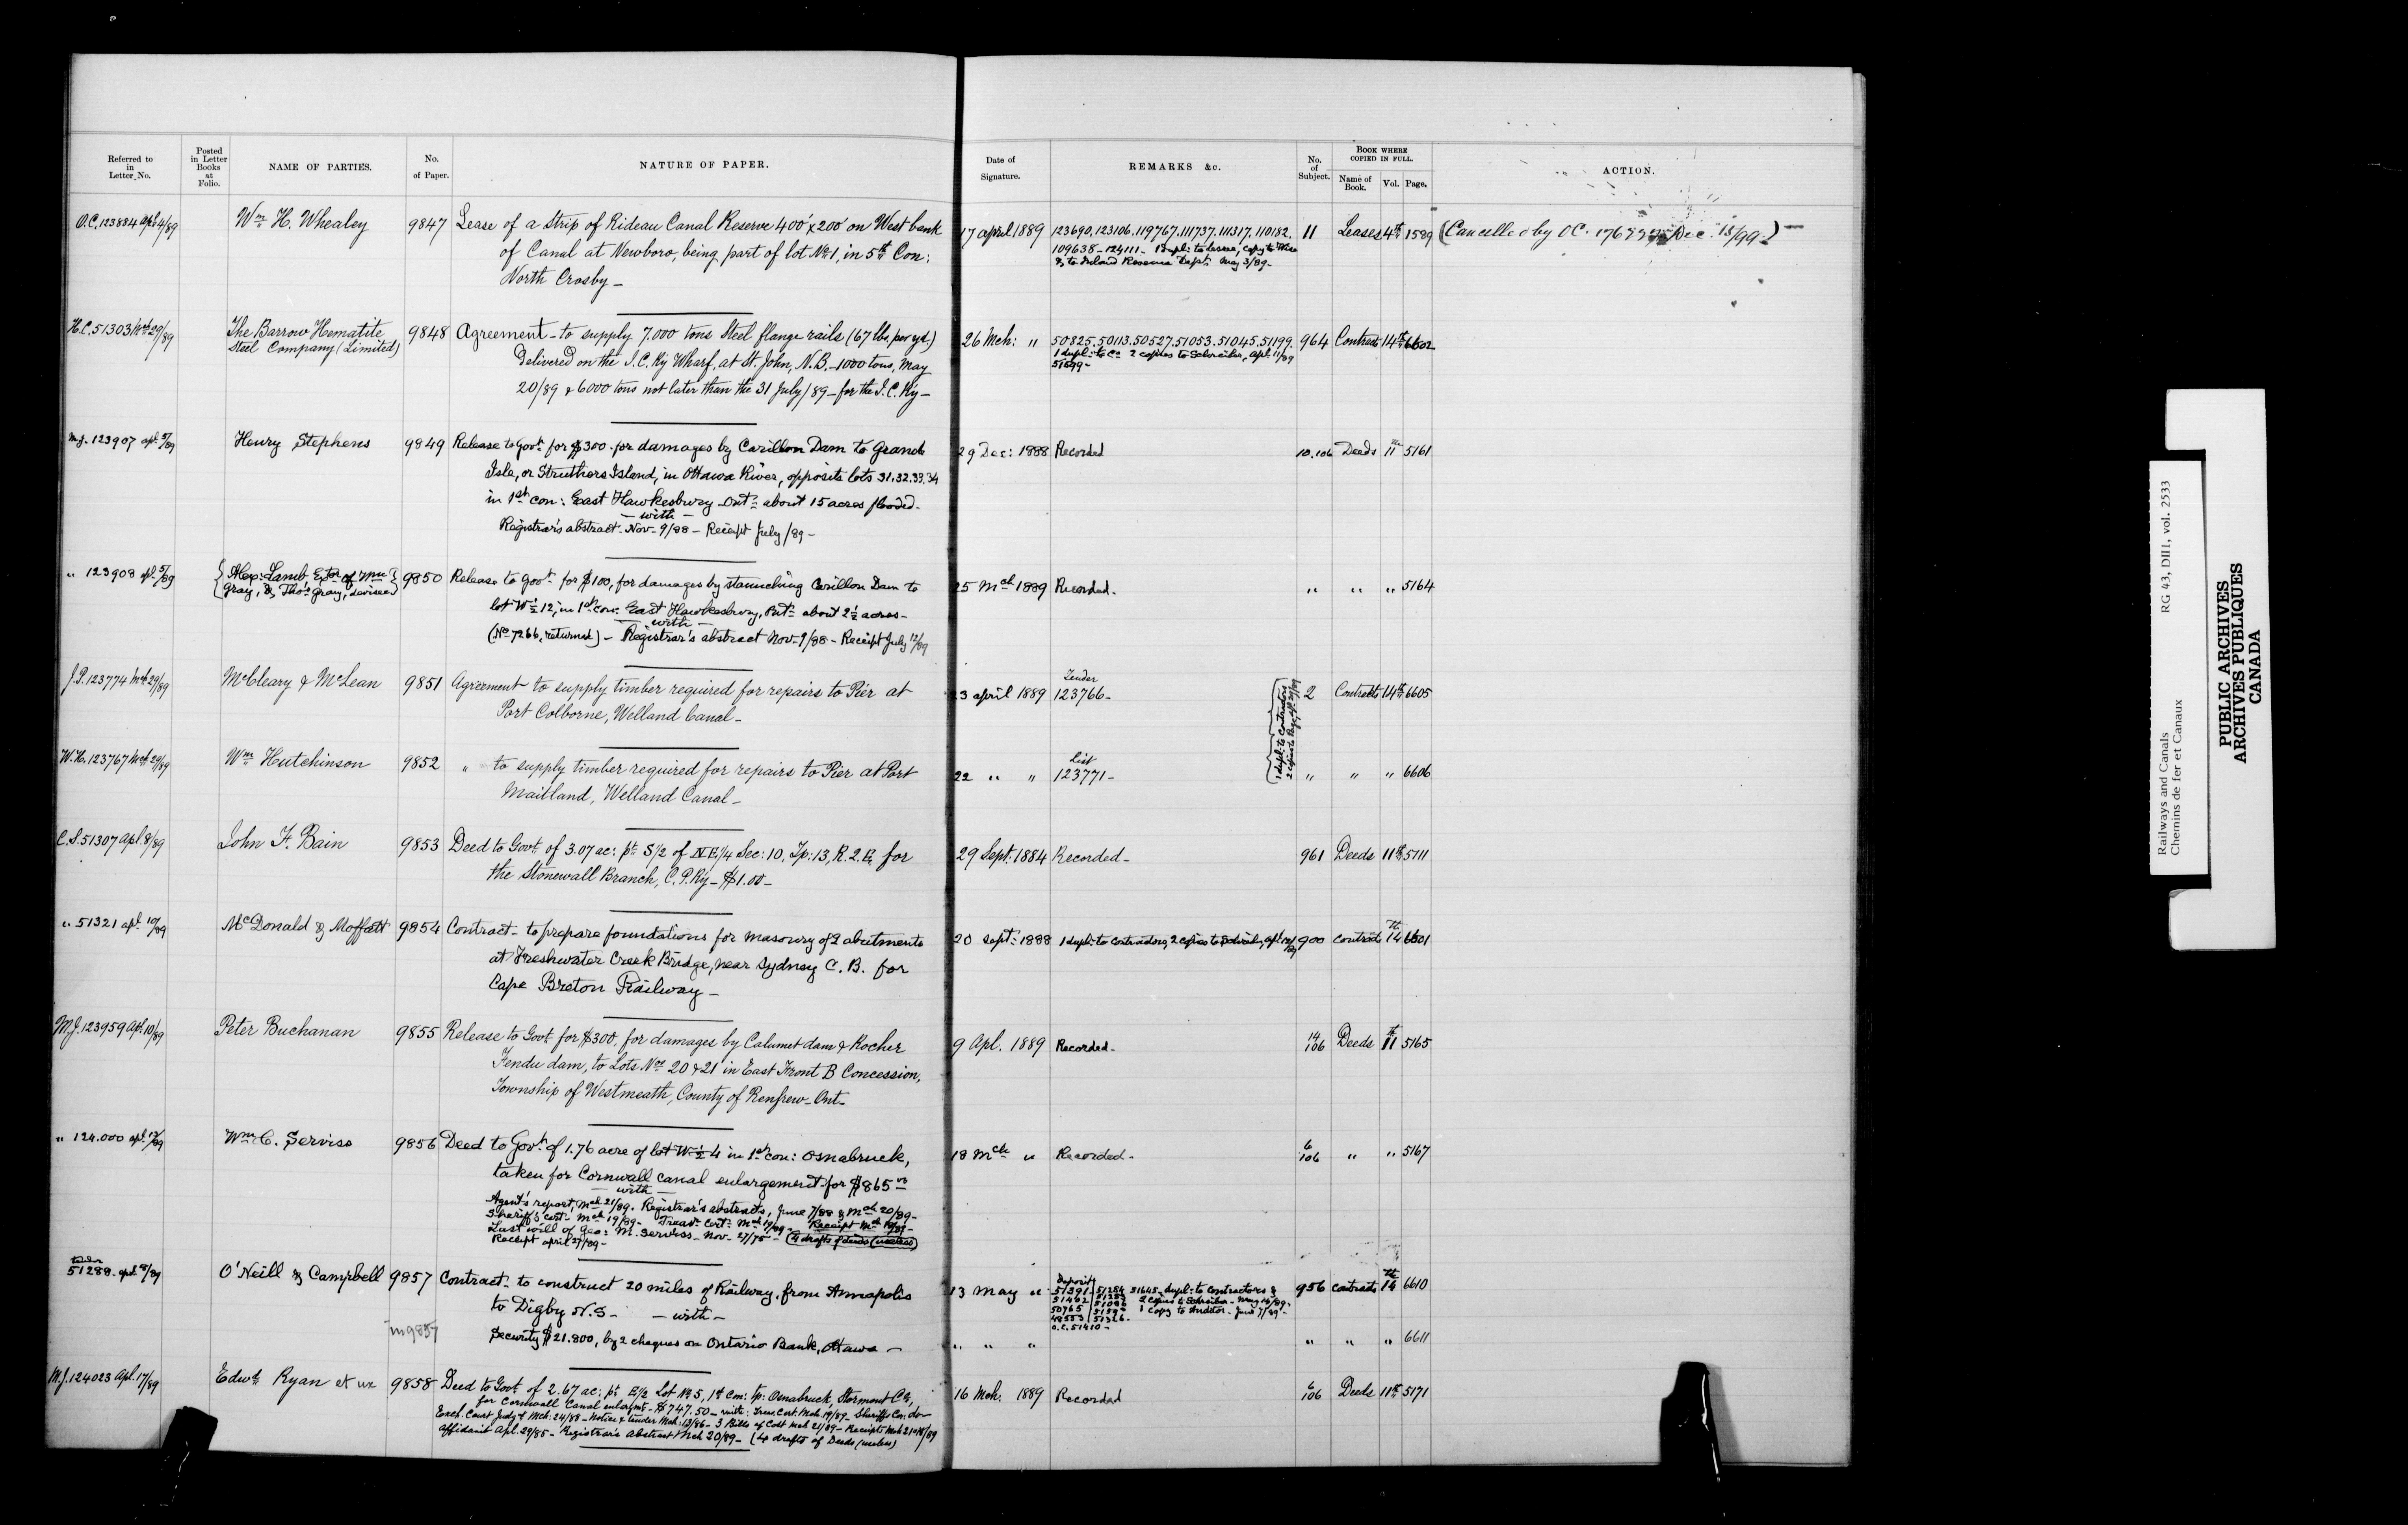 Referred to in Letter No.
Posted in Letter Books at Folio.
NAME OF PARTIES.
No. of Paper.
NATURE OF PAPER.
Date of Signature.
REMARKS &c.
No. of Subject.
BOOK WHERE COPIED IN FULL.
Name of Book. Vol. Page.
ACTION.
O.C. 123884 Apl 4/89 Wm H. Whealey 9847 Lease of a Strip of Rideau Canal Reserve 400' x 200' on West bank 17 april 1889 123690. 123106. 119767. 111737. 111317. 110182. 11 Leases 4th 1589 (Cancelled by OC. Dec. 13/99)
of Canal at Newboro, being part of lot No 1, in 5th Con: 109638 - 124111 - 1 dupl: to lessee, copy to Wise
North Crosby - & to Inland Revenue Dept: May 3/89 -
H.C. 51303 Mch 29/89 The Barrow Hematite 9848 Agreement - to supply 7.000 tons Steel flange rails (67 lbs. per yd.) 26 Mch: " 50825. 50113. 50527. 51053. 51045. 51199. 964 Contracts 14th 6602
Steel Company (Limited) Delivered on the I.C. Ry Wharf, at St. John, N.B. - 1000 tons, May 1 dupl: to Co 2 copies to Schreiber, Apl. 11/89
20/89 & 6000 tons not later than the 31 July/89 - for the I.C. Ry -
M.J. 123907 apl. 5/89 Henry Stephens 9849 Release to Govt. for $300. for damages by Carillon Dam to Grand 29 Dec: 1888 Recorded 10.106 Deeds 11 5161
Isle, or Struthers Island, in Ottawa River, opposite lots 31. 32. 33. 34
in 1st con: East Hawkesbury Ont: about 15 acres flooded -
- with -
Registrar's abstract - Nov - 9/88 - Receipt July /89 -
" 123908 apl. 5/89 { Alex: Lamb, Extor of Wm } 9850 Release to Govt. for $100, for damages by staunching Carillon Dam to 25 Mch 1889 Recorded - " " " 5164
Gray, & Thos Gray, devisee lot W½ 12, in 1st con: East Hawkesbury, Ont: about 2½ acres -
- with -
(No 7266, returned) - Registrar's abstract Nov - 9/88 - Receipt July 12/89
J.P. 123774 Mch 29/89 McCleary & McLean 9851 Agreement to supply timber required for repairs to Pier at 23 april 1889 Tender 123766 - 2 Contracts 14th 6605
Port Colborne, Welland Canal - 1 dupl: to Contractors
W.H. 123767 Mch 29/89 Wm Hutchinson 9852 " to supply timber required for repairs to Pier at Port 22 " " List 123771 - " " " 6606
Maitland, Welland Canal -
C.S. 51307 Apl. 8/89 John F. Bain 9853 Deed to Govt of 3.07 ac: pt S/2 of NE1/4 Sec: 10, Tp: 13, R. 2. E. for 29 Sept: 1884 Recorded - 961 Deeds 11th 5111
the Stonewall Branch, C.P. Ry - $1.00 -
" 51321 apl. 10/89 McDonald & Moffatt 9854 Contract - to prepare foundations for masonry of 2 abutments 20 Sept: 1888 1 dupl: to contractors, 2 copies to Schreiber, apl. 900 Contracts 14th 6601
at Freshwater Creek Bridge, near Sydney C.B. for
Cape Breton Railway -
M.J. 123959 Apl. 10/89 Peter Buchanan 9855 Release to Govt for $300, for damages by Calumet dam & Rocher 9 Apl. 1889 Recorded - 14/106 Deeds 11th 5165
Fendu dam, to Lots Nos 20 & 21 in East Front B Concession,
Township of Westmeath, County of Renfrew - Ont -
" 124.000 apl. 13/89 Wm C. Serviss 9856 Deed to Govt. of 1.76 acre of lot W½ 4 in 1st con: Osnabruck, 18 Mch " Recorded - 6/106 " " 5167
taken for Cornwall Canal enlargement for $865.00
- with -
Agent's report, Mch 21/89. Registrar's abstracts, June 7/88 & Mch 20/89 -
Sheriff's cert - Mch 19/89 - Treas: Cert: Mch 19/89 - Receipt Mch
Last will of Geo: M. Serviss - Nov - 27/75 - (4 drafts of deeds (useless))
Receipt april 27/89 -
Tender 51288 - apl. 8/89 O'Neill & Campbell 9857 Contract - to construct 20 miles of Railway, from Annapolis 13 May " Deposit 51391 51645 - dupl: to Contractors & 956 Contracts 14th 6610
to Digby N.S - - with - 51462 2 copies to Schreiber - May 16/89 -
50765 1 copy to Auditor - June 7/89 -
48553 51326 -
O.C. 51410 -
in 9857 Security $21.800, by 2 cheques on Ontario Bank, Ottawa - " " " " " " 6611
M.J. 124023 Apl. 17/89 Edwd Ryan et ux 9858 Deed to Govt of 2.67 ac: pt E/2 Lot No 5, 1st Con: Tp: Osnabruck, Stormont Co, 16 Mch: 1889 Recorded 6/106 Deeds 11th 5171
for Cornwall Canal enlargmt - $747.50 - with: Treas. Cert: Mch 19/89 - Sheriff's Cer: do -
Exch. Court Judgt Mch: 24/88 - Notice & tender Mch: 13/86 - 3 Bills of Cost Mch 21/89 - Receipts Mch
Affidavit Apl. 29/85 - Registrar's Abstract Mch 20/89 - (4 drafts of Deeds (useless)
Railways and Canals RG 43, DII1, vol. 2533
Chemins de fer et Canaux
PUBLIC ARCHIVES
ARCHIVES PUBLIQUES
CANADA